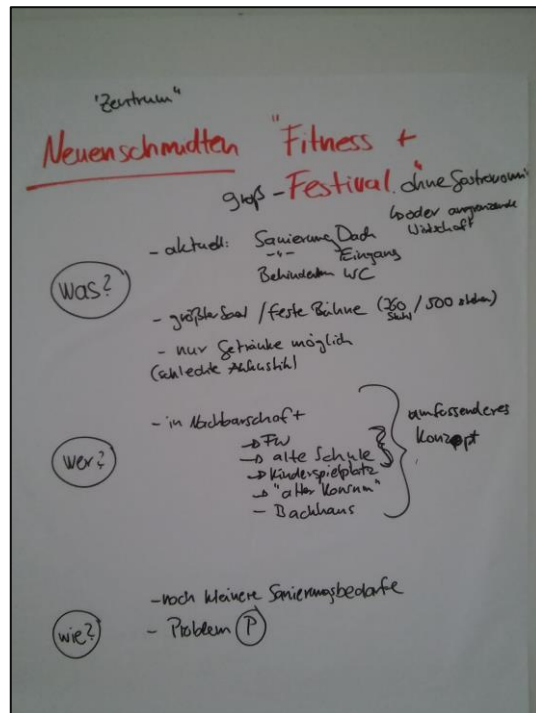 "Zentrum"
Neuenschmidten "Fitness +
groß - Festival." ohne Gastronomie
↳ oder angrenzende
Wirtschaft
- aktuell: Sanierung Dach
-"- Eingang
Behinderten WC
Was?
- größter Saal / feste Bühne (260 Stuhl / 500 stehen)
- nur Getränke möglich
(schlechte Akkustik)
- in Nachbarschaft
→ FW
wer?
→ alte Schule
→ Kinderspielplatz
→ "alter Konsum"
- Backhaus
umfassenderes
Konzept
- noch kleinere Sanierungsbedarfe
wie?
- Problem P